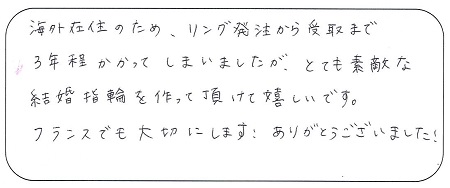 海外在住のため、リング発注から受取まで
3年程かかってしまいましたが、とても素敵な
結婚指輪を作って頂けて嬉しいです。
フランスでも大切にします!ありがとうございました!